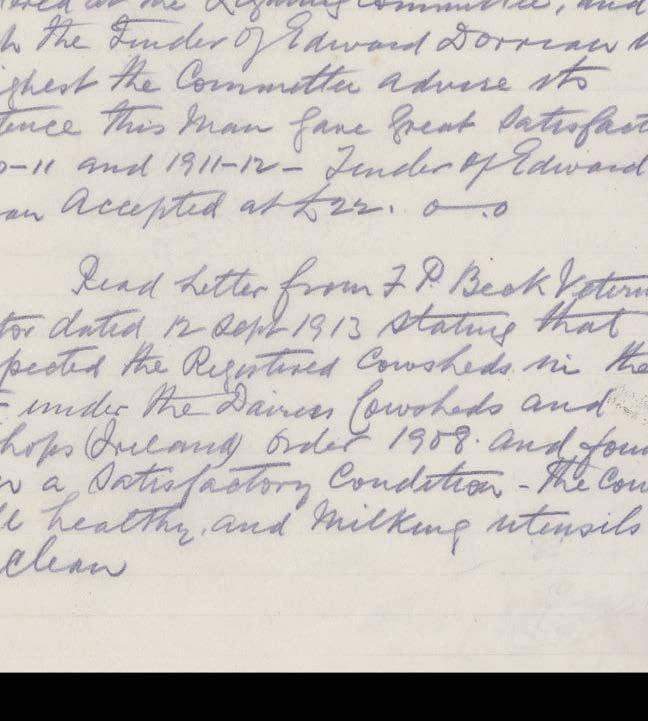 ered at the Lighting Committee, and
h the Tender of Edward Dorrian
ighest the Committee advise its
tence this man gave great satisfact
0-11 and 1911-12 - Tender of Edward
an Accepted at £22. 0-.0
Read letter from F P. Beck Veterin
tor dated 12 Sept 1913 stating that
pected the Registered Cowsheds in the
under the Dairies Cowsheds and
hops (Ireland) order 1908. and foun
a satisfactory Condition - The Cow
ll healthy. and Milking utensils
clean